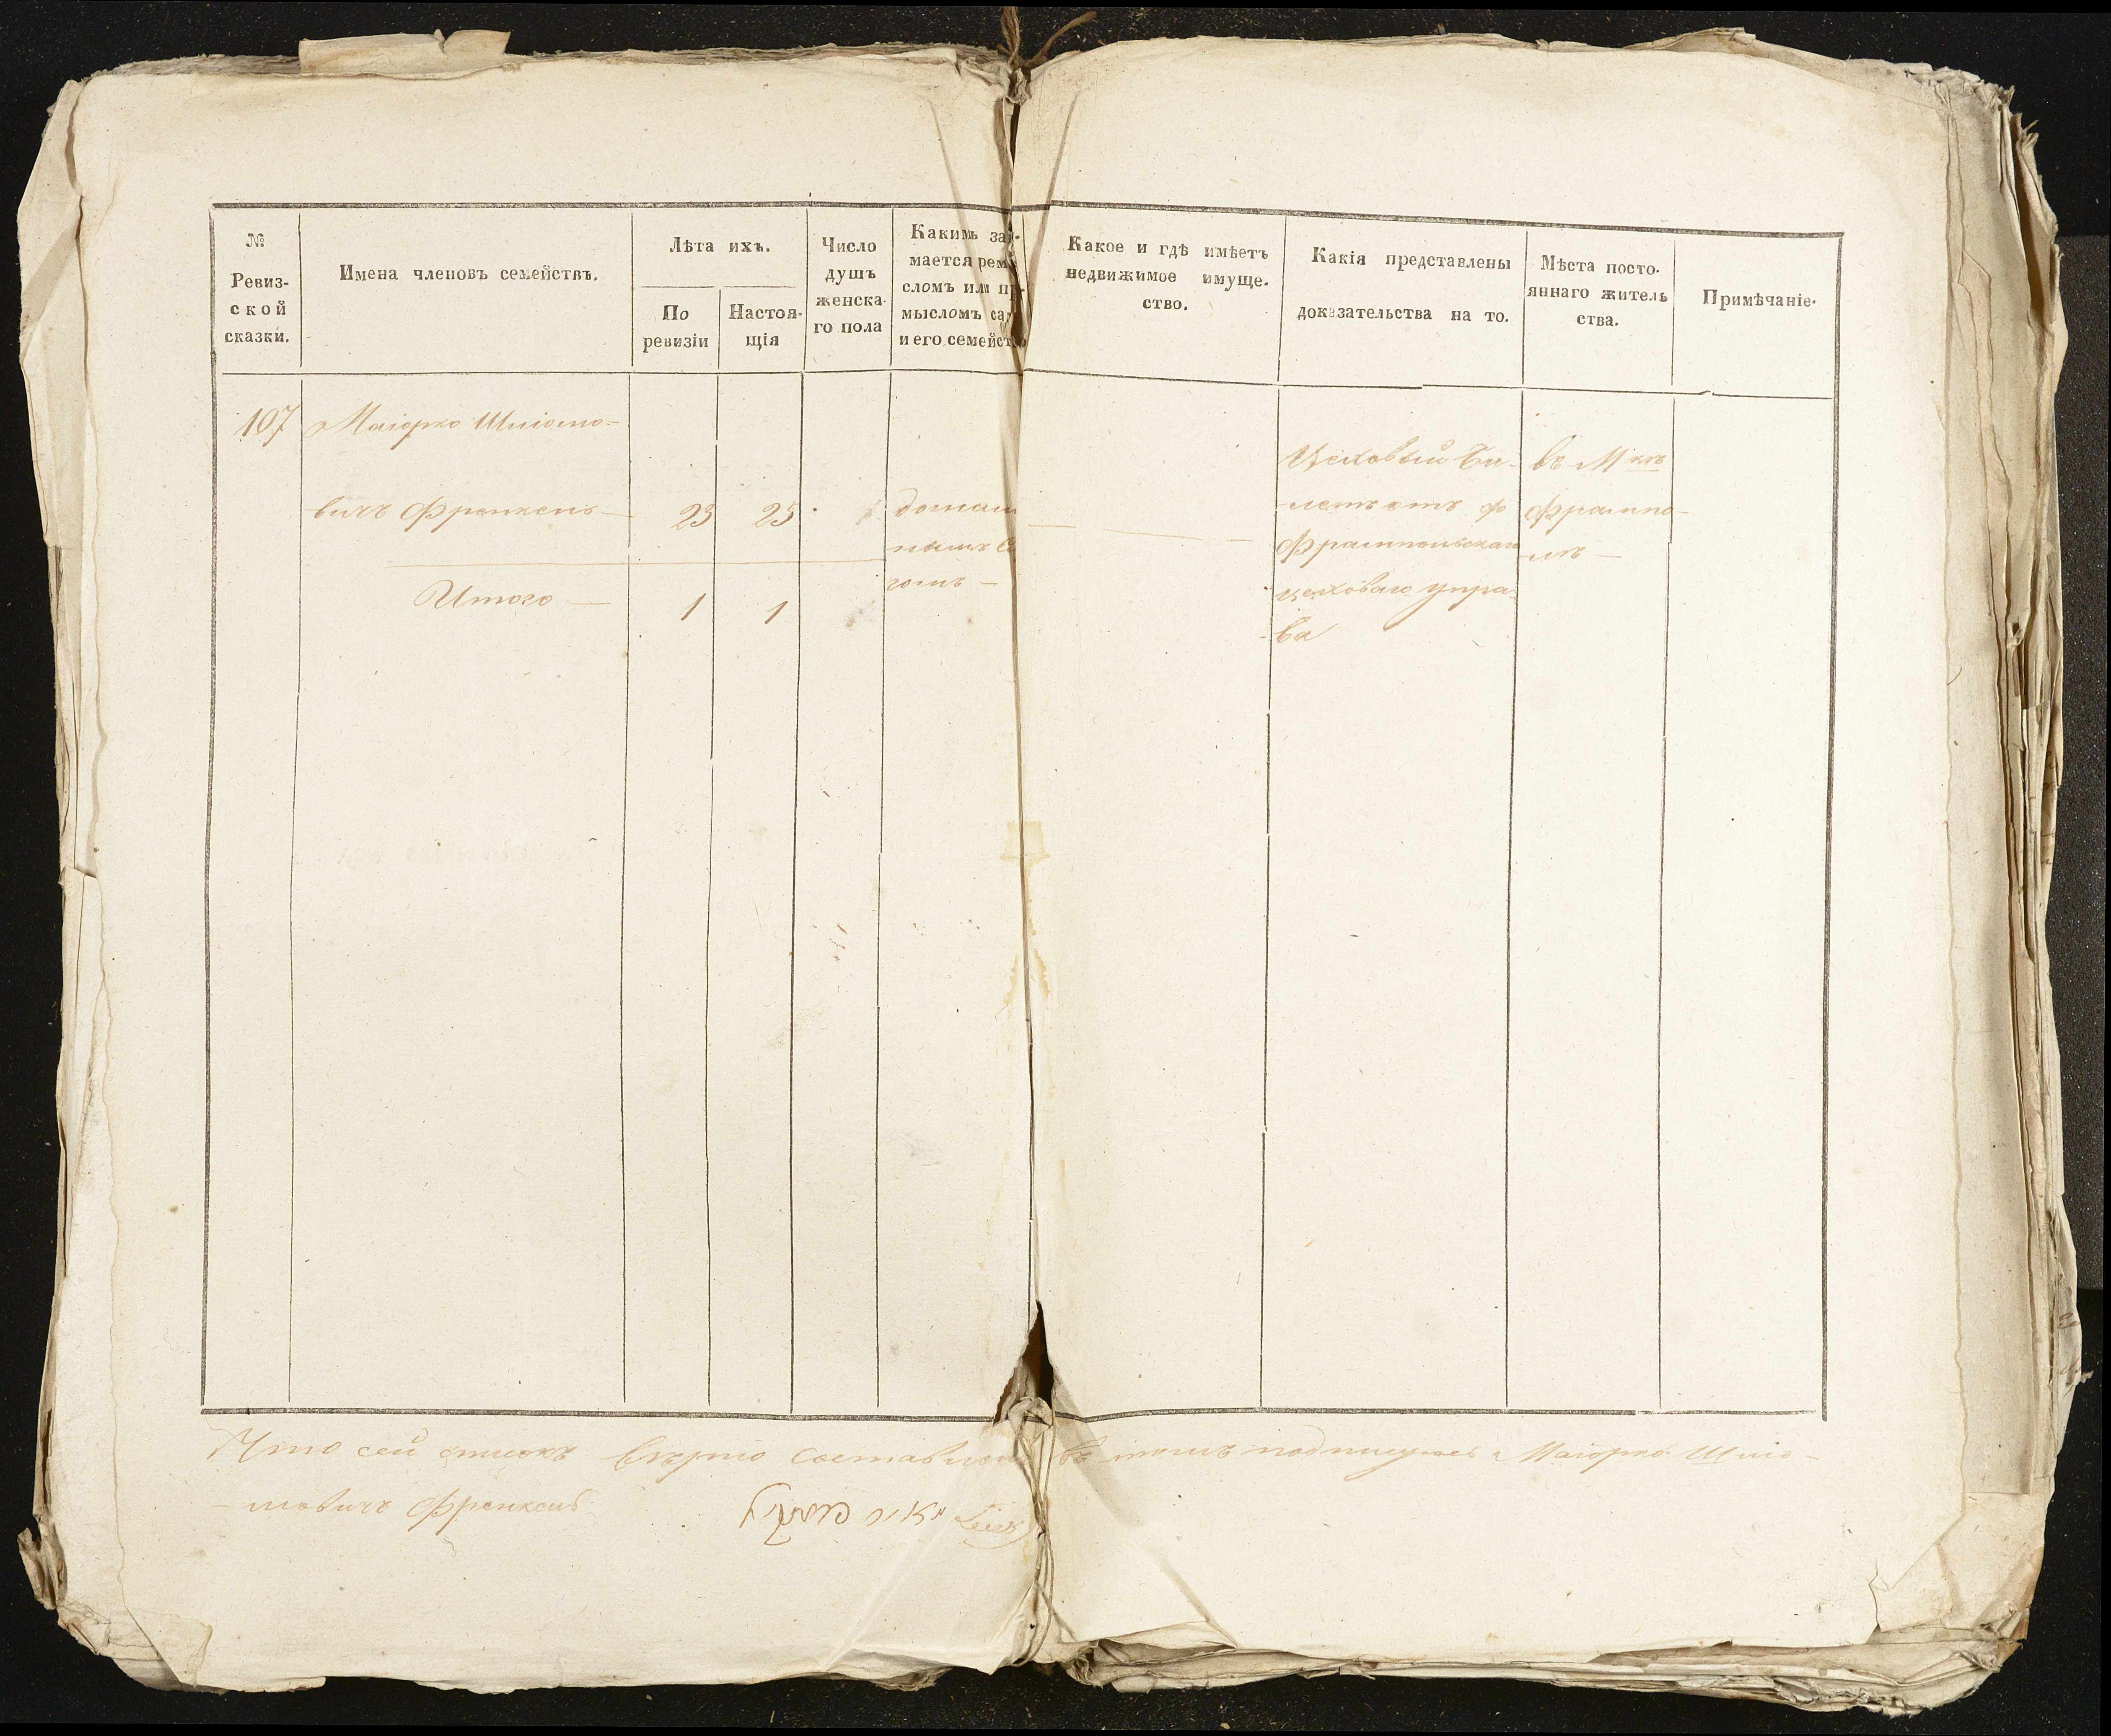 №
Ревиз-
ской
сказки.
Имена членовъ семействъ.
Лѣта ихъ.
По
ревизіи
Настоя-
щія
Число
душъ
женска-
го пола
Какимъ за
мается рем
сломъ или п
мысломъ са
и его семейст
Какое и гдѣ имѣетъ
недвижимое имуще-
ство.
Какія представлены
доказательства на то.
Мѣста посто-
яннаго житель
ства.
Примѣчаніе.
107
Маіорко Шліомо-
вичъ Френкель
23
25
Итого
1
1
Цеховый Би-
летъ отъ ф
Фрампольская
цеховаго упра-
ва
въ М
Фрампо-
лѣ
Что сей списокъ вѣрно составленъ въ томъ подписуюсь Маіорко Шліо-
мовичъ Френкель